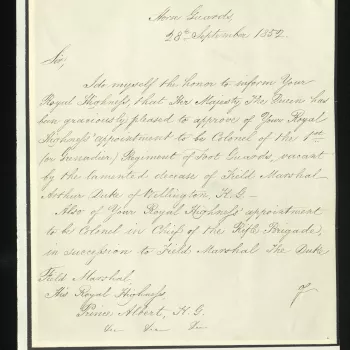 Horse Guards,
28th September 1852.
Sir,
I do myself the honor to inform Your
Royal Highness, that Her Majesty The Queen has
been graciously pleased to approve of Your Royal
Highness' appointment to be Colonel of the 1st
(or Grenadier) Regiment of Foot Guards, vacant
by the lamented decease of Field Marshal
Arthur Duke of Wellington, K.G.—
Also of Your Royal Highness' appointment
to be Colonel in Chief of the Rifle Brigade,
in succession to Field Marshal The Duke
Field Marshal,
His Royal Highness,
Prince Albert, K.G.